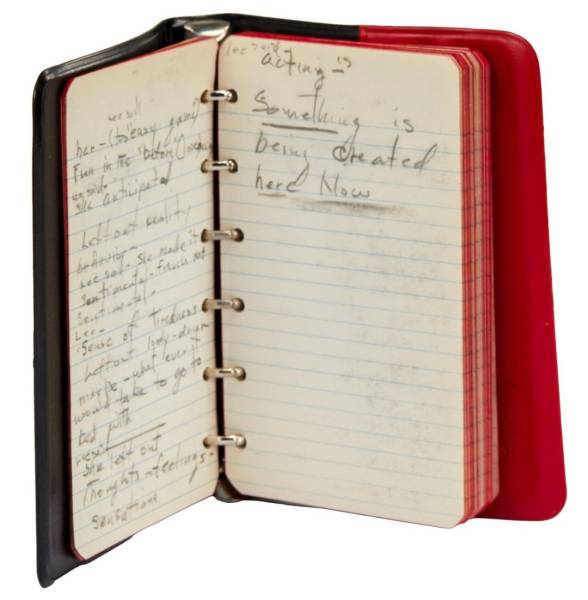 result
her - (to easy game)
Fun in the "before"
we said -
she anticipated
Left out reality
behavior -
Lee said - she made it
sentimental - french not
sentimental -
Lee -
Sense of Tiredness
Left out body - desire
maybe - what ever it
would take to go to
bed with
result
she left out
Thoughts - feelings -
Sensations
Lee said
acting - is
Something is
being created
here Now